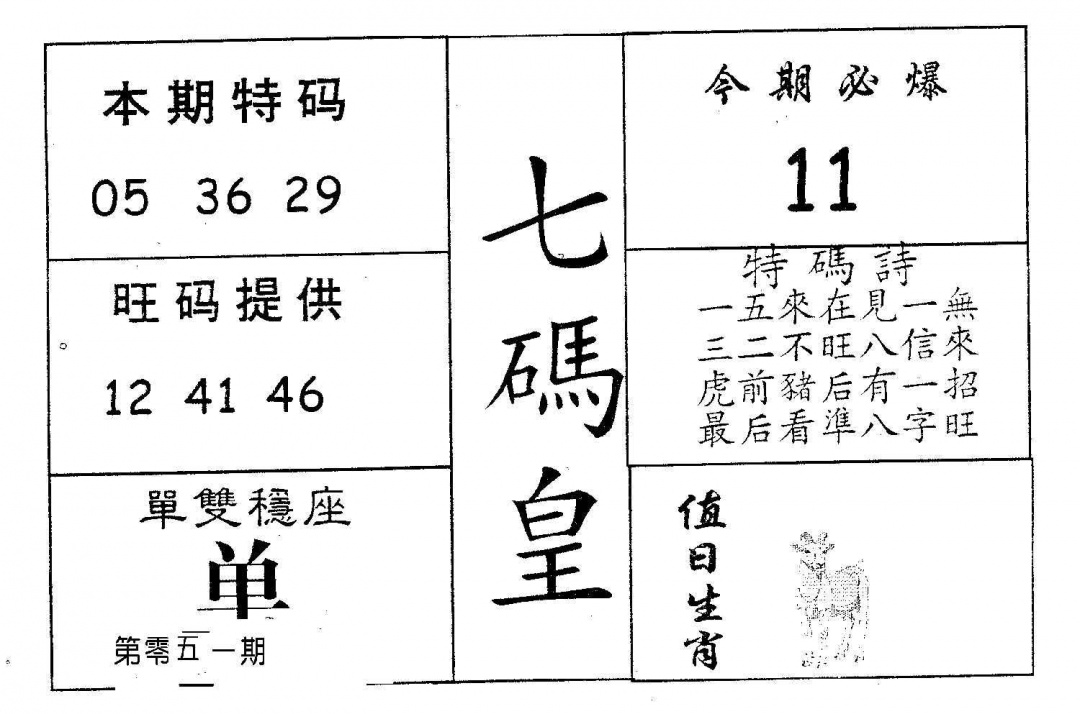 本期特码
05 36 29
旺码提供
12 41 46
單雙穩座
单
第零五一期
七碼皇
今期必爆
11
特碼詩
一五來在見一無
三二不旺八信來
虎前豬后有一招
最后看準八字旺
值日生肖